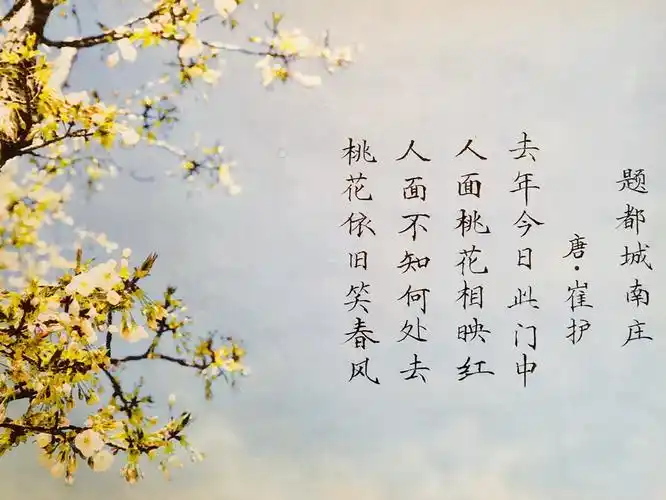 题都城南庄
唐·崔护
去年今日此门中
人面桃花相映红
人面不知何处去
桃花依旧笑春风